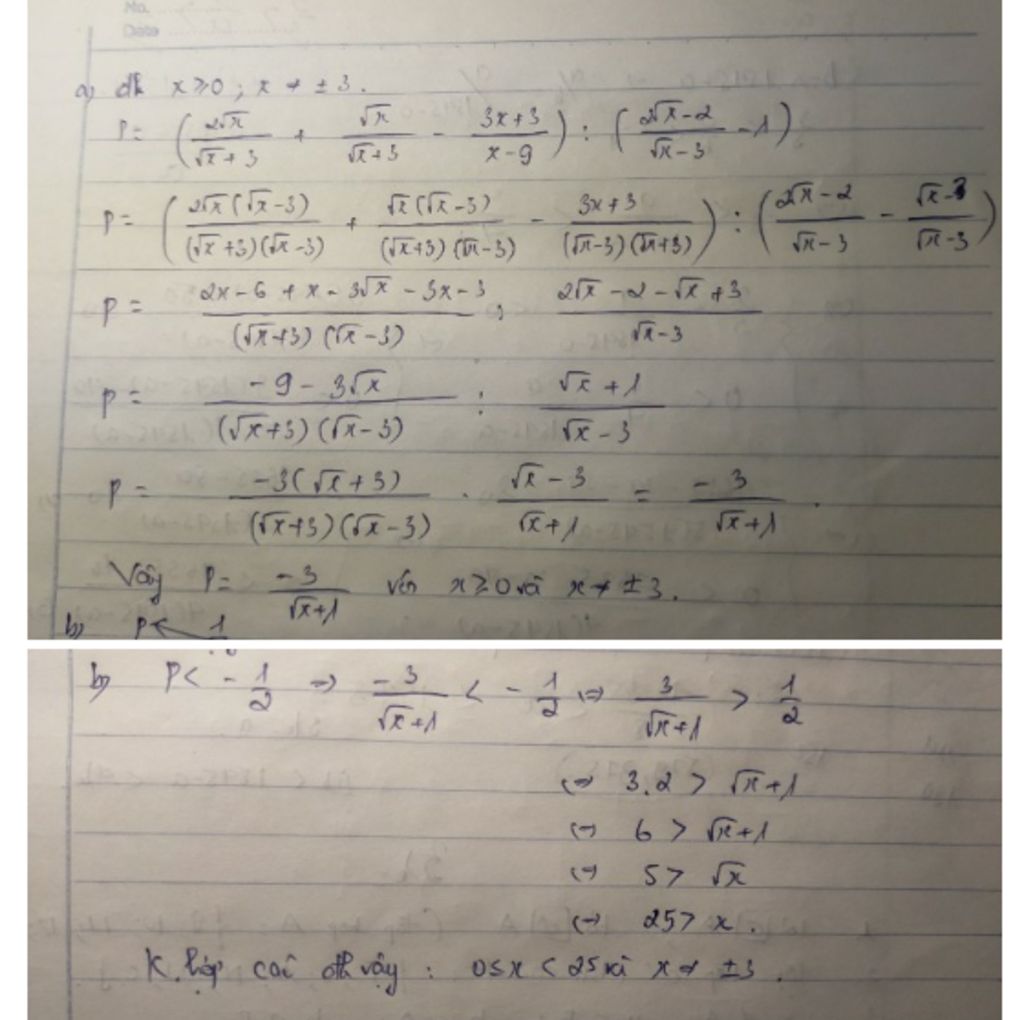 No.
Date
a) đk x ≥ 0 ; x ≠ ± 3 .
P = ( 2√x / (√x + 3) + √x / (√x + 3) - (3x + 3) / (x - 9) ) : ( (2√x - 2) / (√x - 3) - 1 )
P = ( 2√x (√x - 3) / ((√x + 3) (√x - 3)) + √x (√x - 3) / ((√x + 3) (√x - 3)) - (3x + 3) / ((√x - 3) (√x + 3)) ) : ( (2√x - 2) / (√x - 3) - (√x - 3) / (√x - 3) )
P = (2x - 6 + x - 3√x - 3x - 3) / ((√x + 3) (√x - 3)) : (2√x - 2 - √x + 3) / (√x - 3)
P = (- 9 - 3√x) / ((√x + 3) (√x - 3)) : (√x + 1) / (√x - 3)
P = -3(√x + 3) / ((√x + 3) (√x - 3)) . (√x - 3) / (√x + 1) = - 3 / (√x + 1) .
Vậy P = - 3 / (√x + 1) với x ≥ 0 và x ≠ ± 3 .
b) P < 1
b) P < - 1/2 => - 3 / (√x + 1) < - 1/2 <=> 3 / (√x + 1) > 1/2
<=> 3.2 > √x + 1
<=> 6 > √x + 1
<=> 5 > √x
<=> 25 > x .
K. hợp các đk vậy : 0 ≤ x < 25 và x ≠ ± 3 .